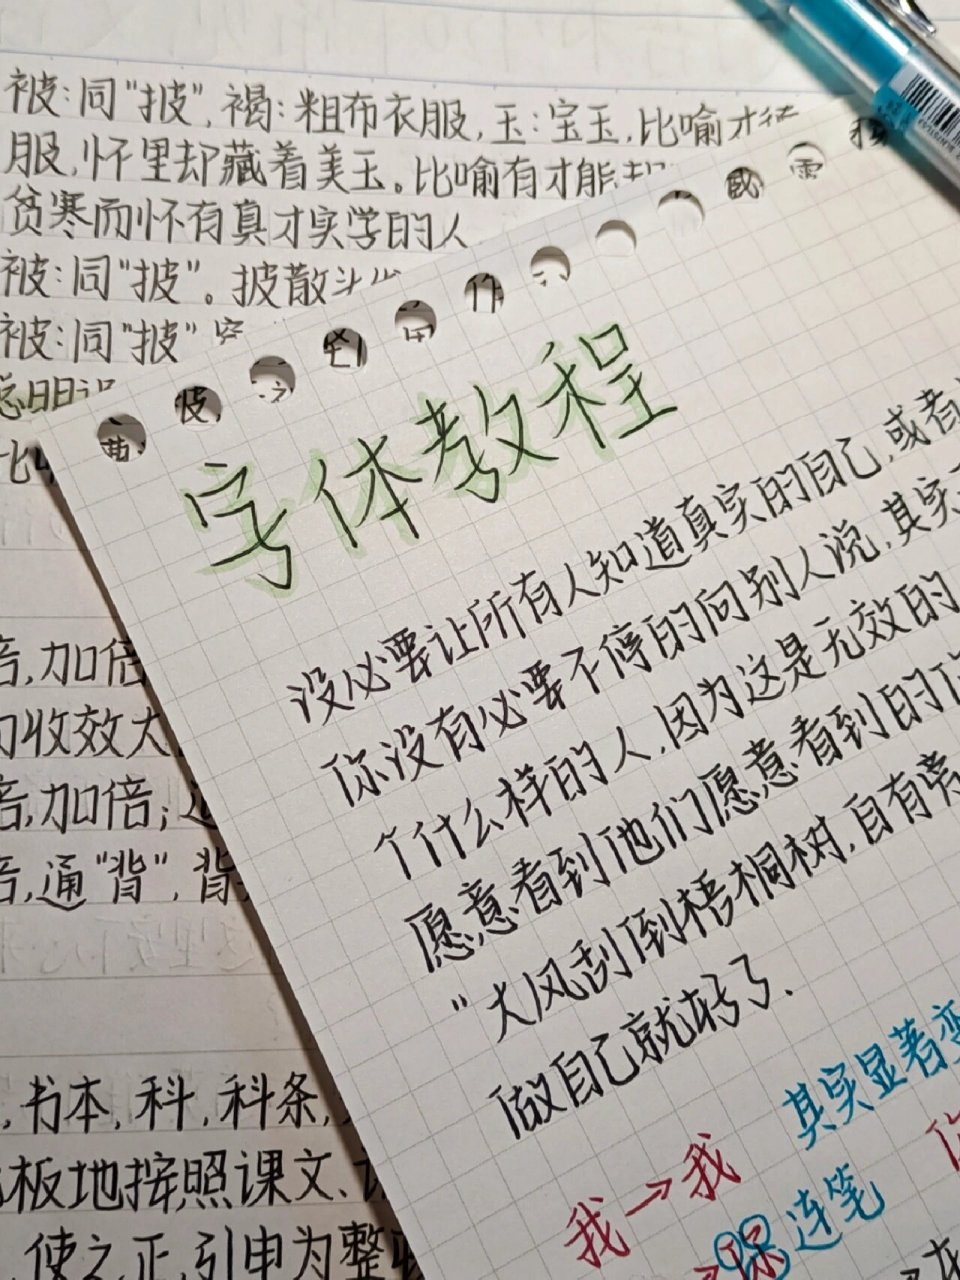 被:同"披",褐:粗布衣服,玉:宝玉,比喻才
服,怀里却藏着美玉。比喻有才能
贫寒而怀有真才实学的人
被:同"披"。披散
被:同"披"
字体教程
没必要让所有人知道真实的自己,或者
你没有必要不停的向别人说,其实
个什么样的人,因为这是无效的
愿意看到他们愿意看到的
"大风刮到梧桐树,自有旁
做自己就好了.
其实显著变
我→我
②连笔
倍,加倍
收效大
倍,加倍;
倍,通"背",背
,书本,科,科条,
板地按照课文、
使之正,引申为整